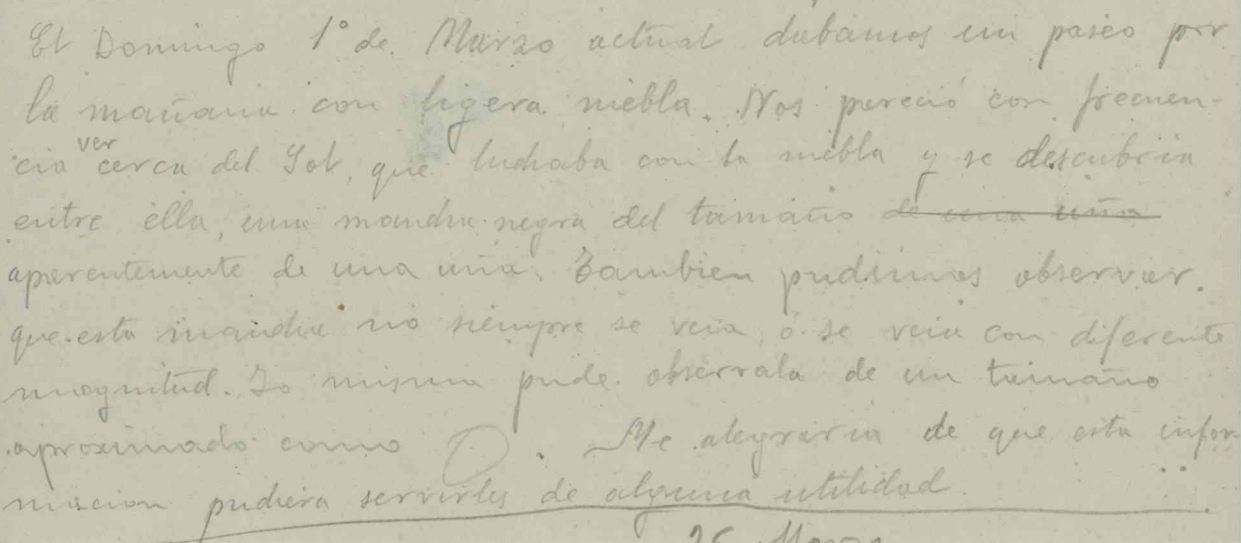 El Domingo 1º de Marzo actual dabamos un paseo por
la mañana con ligera niebla. Nos pareció con frecuen-
cia ver cerca del Sol, que luchaba con la niebla y se descubria
entre ella, una mancha negra del tamaño de una uña
aparentemente de una uña. Tambien pudimos observar.
que esta mancha no siempre se veia, ó se veia con diferente
magnitud. Yo misma pude observala de un tamaño
aproximado como . Me alegraria de que esta infor-
macion pudiera servirles de alguna utilidad.
26 Marzo